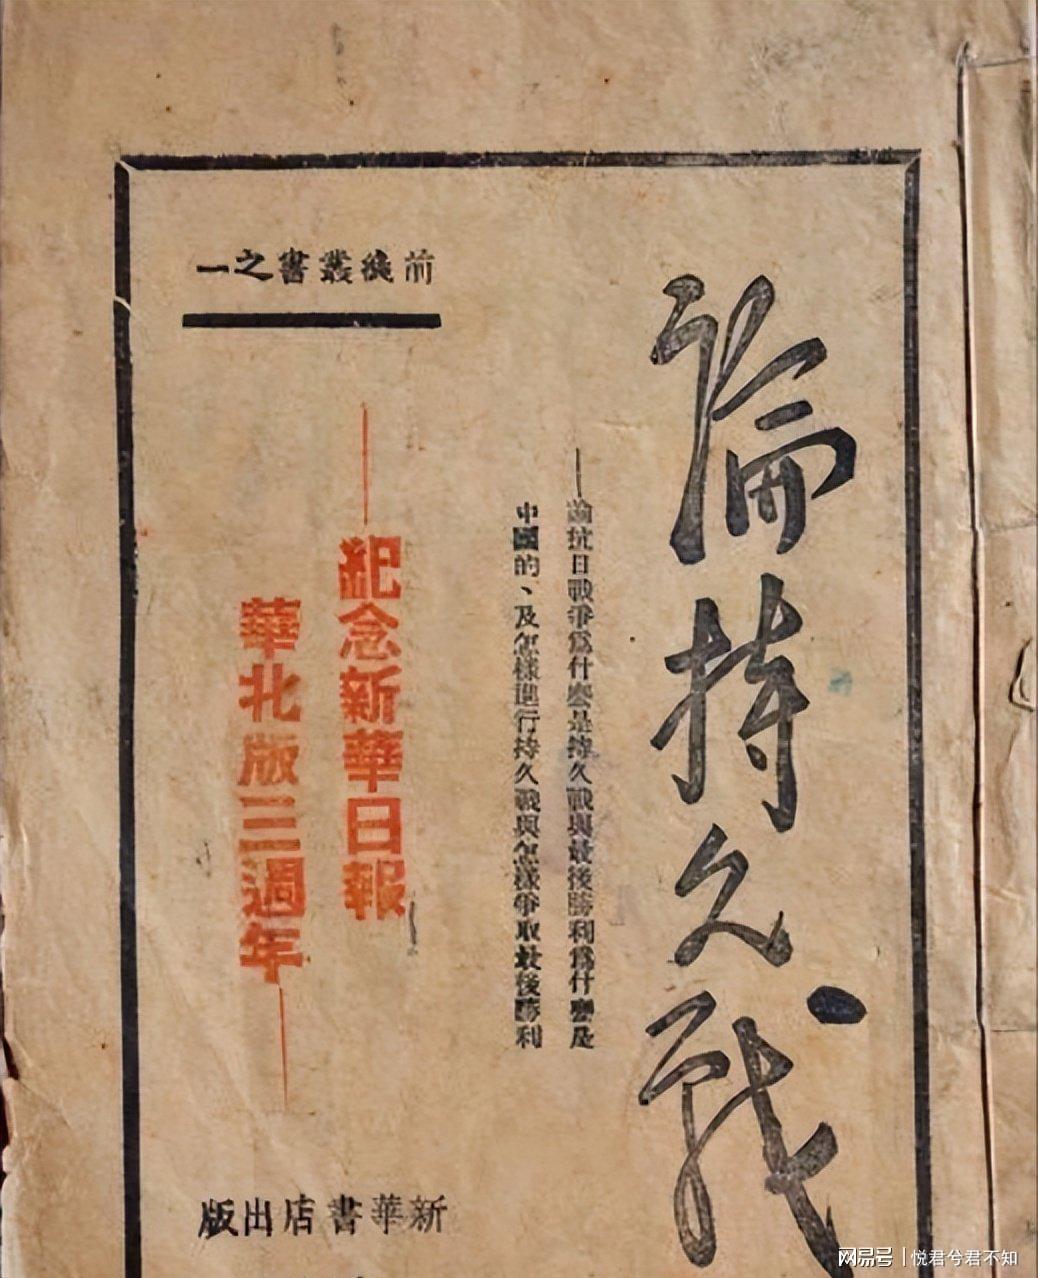 論持久戰
——論抗日戰爭爲什麼是持久戰與最後勝利爲什麼是
中國的、及怎樣進行持久戰與怎樣爭取最後勝利
前綫叢書之一
——紀念新華日報
華北版三週年——
新華書店出版
网易号 | 悦君兮君不知